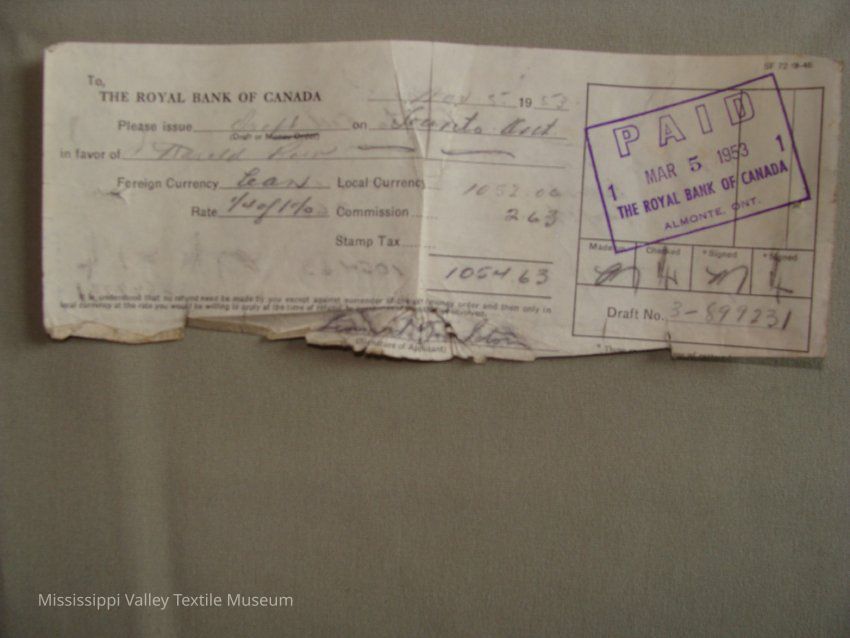 SF 72-9-46
To,
THE ROYAL BANK OF CANADA
Mar 5 1953
Please issue Draft on Toronto Ont
(Draft or Money Order)
in favor of Harold
Foreign Currency Can Local Currency 1052.00
Rate 1/4 of 1% Commission 2 63
Stamp Tax
1054 63
It is understood that no refund need be made by you except against surrender of the money order and then only in
local currency at the rate you would be willing to apply at the time of refund
(Signature of Applicant)
PAID
1 MAR 5 1953 1
THE ROYAL BANK OF CANADA
ALMONTE, ONT.
Made Checked *Signed *Signed
Draft No. 3-899231
Mississippi Valley Textile Museum